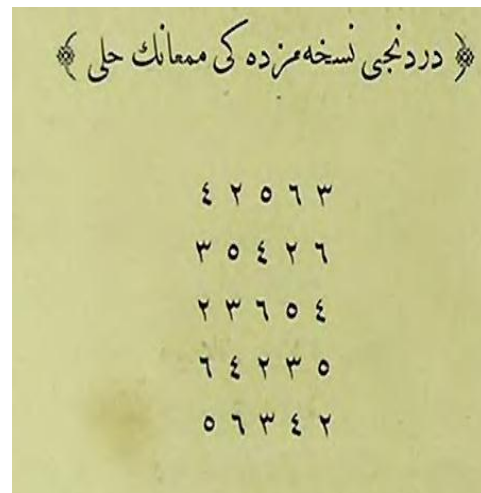 ﴿ دردنجی نسخه‌مزده کی معمانك حلی ﴾
٤ ٢ ٥ ٦ ٣
٣ ٥ ٤ ٢ ٦
٢ ٣ ٦ ٥ ٤
٦ ٤ ٢ ٣ ٥
٥ ٦ ٣ ٤ ٢